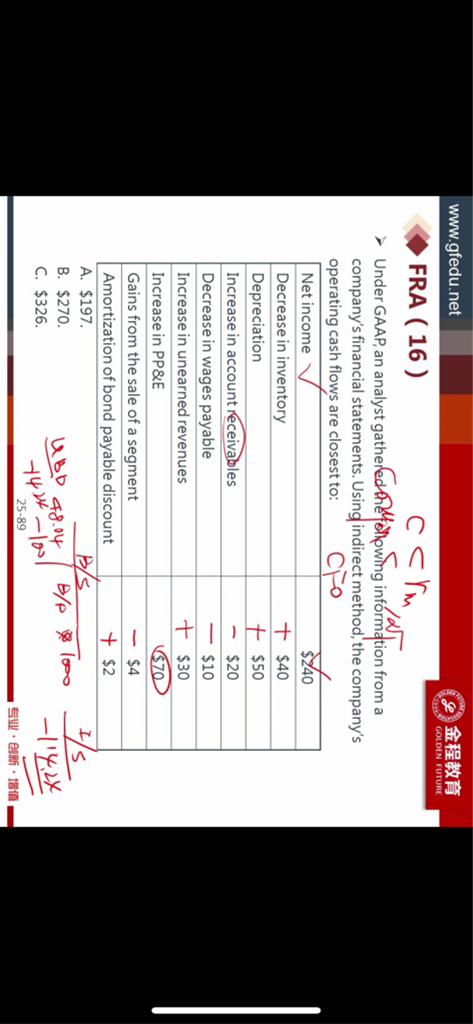 www.gfedu.net
金程教育
GOLDEN FUTURE
FRA ( 16 )
➤ Under GAAP, an analyst gathered the following information from a
company's financial statements. Using indirect method, the company's
operating cash flows are closest to:
CFO
Net income $240
Decrease in inventory + $40
Depreciation + $50
Increase in account receivables − $20
Decrease in wages payable − $10
Increase in unearned revenues + $30
Increase in PP&E $70
Gains from the sale of a segment − $4
Amortization of bond payable discount + $2
A. $197.
B. $270.
C. $326.
B/S
I/S
B/P
1000
25-89
专业·创新·增值